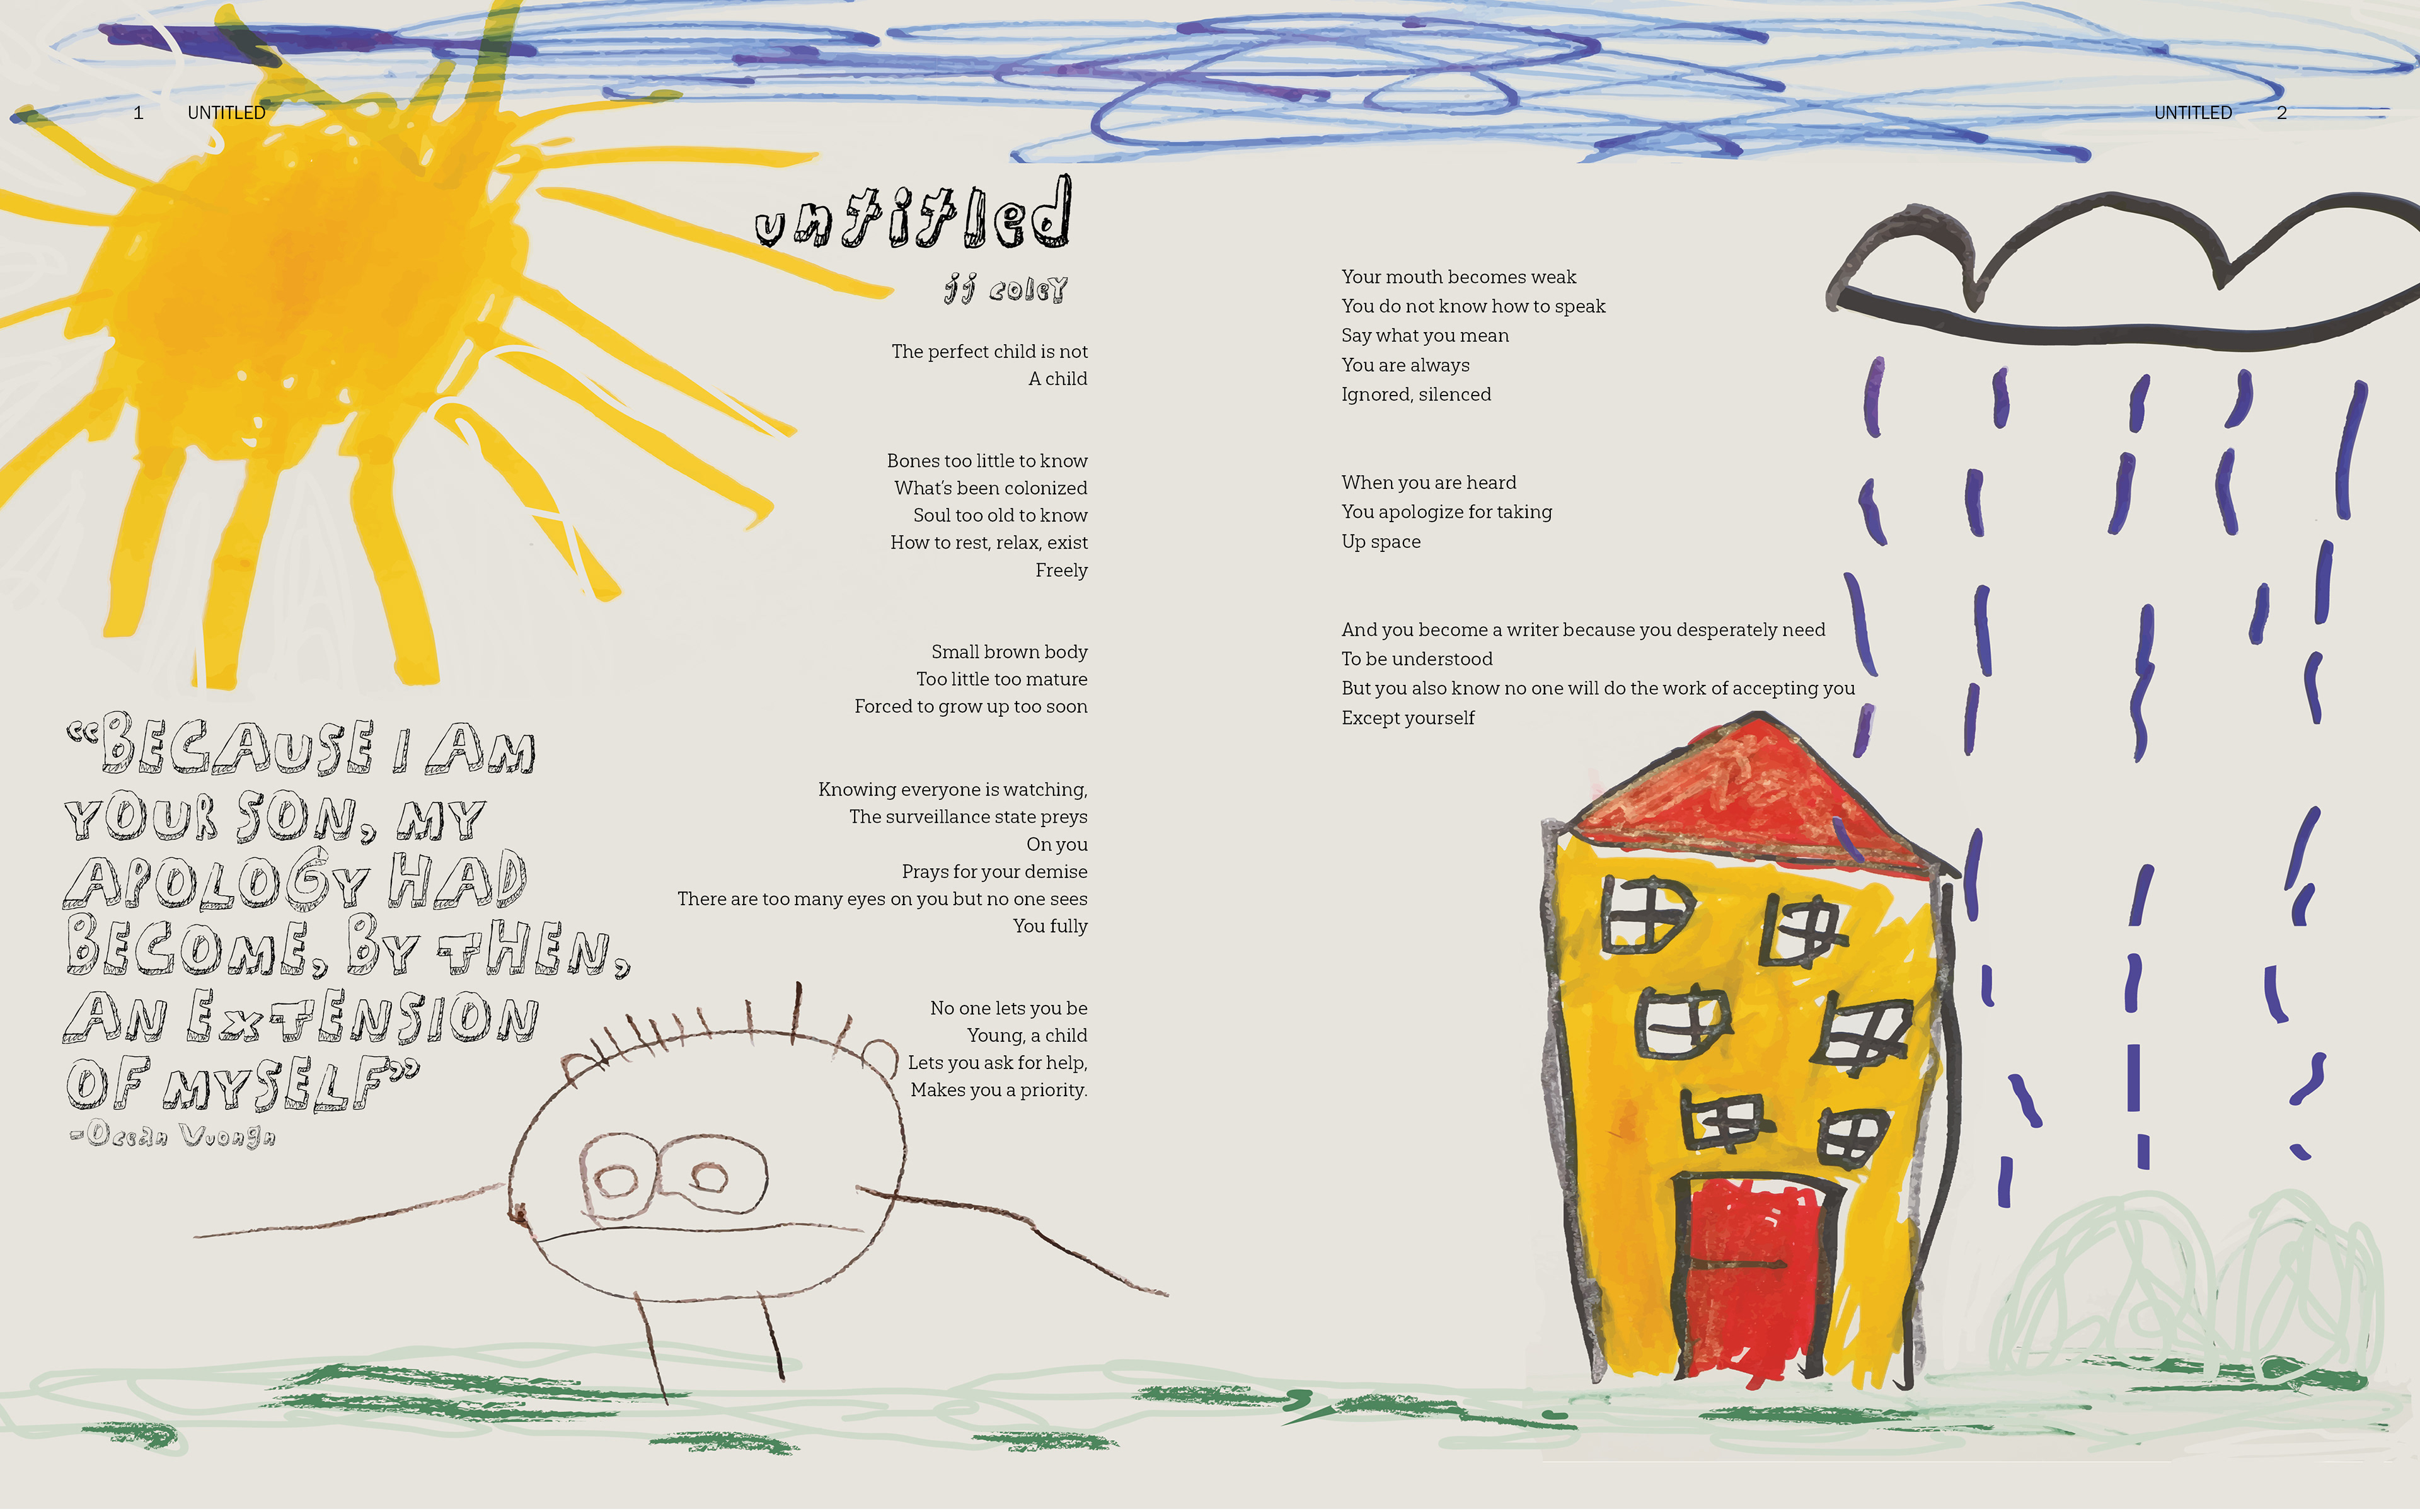 1 UNTITLED
UNTITLED 2
untitled
jj coley
The perfect child is not
A child
Bones too little to know
What's been colonized
Soul too old to know
How to rest, relax, exist
Freely
Small brown body
Too little too mature
Forced to grow up too soon
Knowing everyone is watching,
The surveillance state preys
On you
Prays for your demise
There are too many eyes on you but no one sees
You fully
No one lets you be
Young, a child
Lets you ask for help,
Makes you a priority.
“BECAUSE I AM
YOUR SON, MY
APOLOGY HAD
BECOME, BY THEN,
AN EXTENSION
OF MYSELF”
-Ocean Vuongn
Your mouth becomes weak
You do not know how to speak
Say what you mean
You are always
Ignored, silenced
When you are heard
You apologize for taking
Up space
And you become a writer because you desperately need
To be understood
But you also know no one will do the work of accepting you
Except yourself